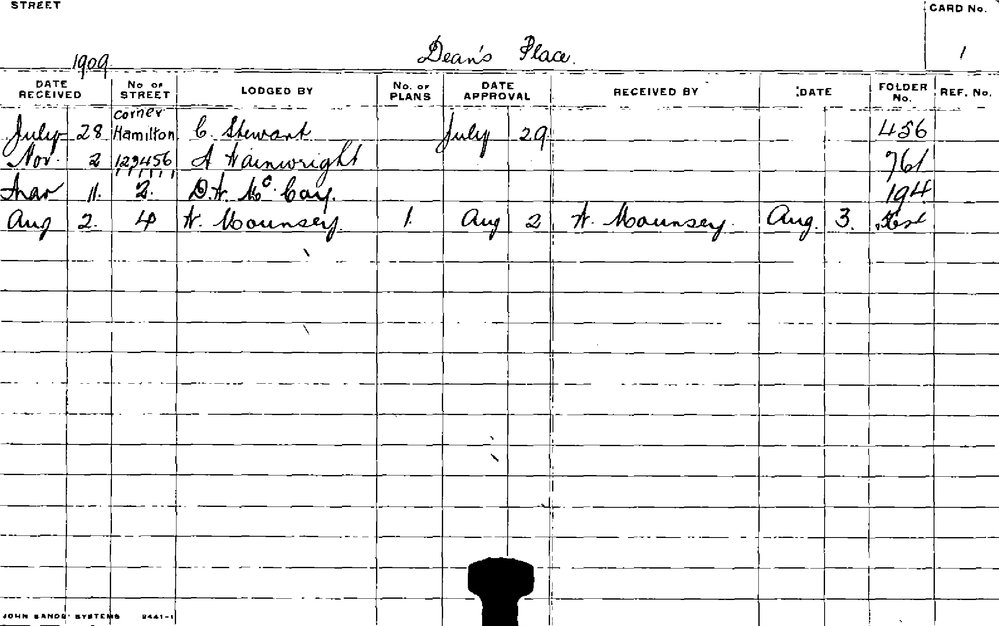 STREET
CARD No.
1909
Dean's Place.
1
DATE RECEIVED No OF STREET LODGED BY No. OF PLANS DATE APPROVAL RECEIVED BY DATE FOLDER No. REF. No.
corner
July 28 Hamilton C. Stewart July 29 456
Nov. 2 123456 A Wainwright 761
Mar 11. 2. D. W. Mc Cay. 194
Aug 2. 4 W. Mounsey. 1. Aug 2 W. Mounsey. Aug. 3.
JOHN SANDS' SYSTEMS 2441-1